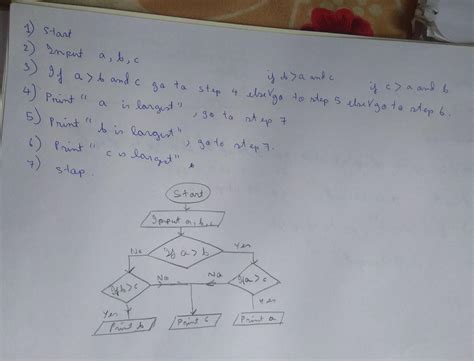 1) Start
2) Input a, b, c
3) If a > b and c go to step 4 else if b > a and c go to step 5 else if c > a and b go to step 6.
4) Print "a is largest", go to step 7
5) Print "b is largest", go to step 7.
6) Print "c is largest"
7) Stop.
Start
Input a, b, c
If a > b
No
Yes
If b > c
No
No
If a > c
Yes
Yes
Print b
Print c
Print a